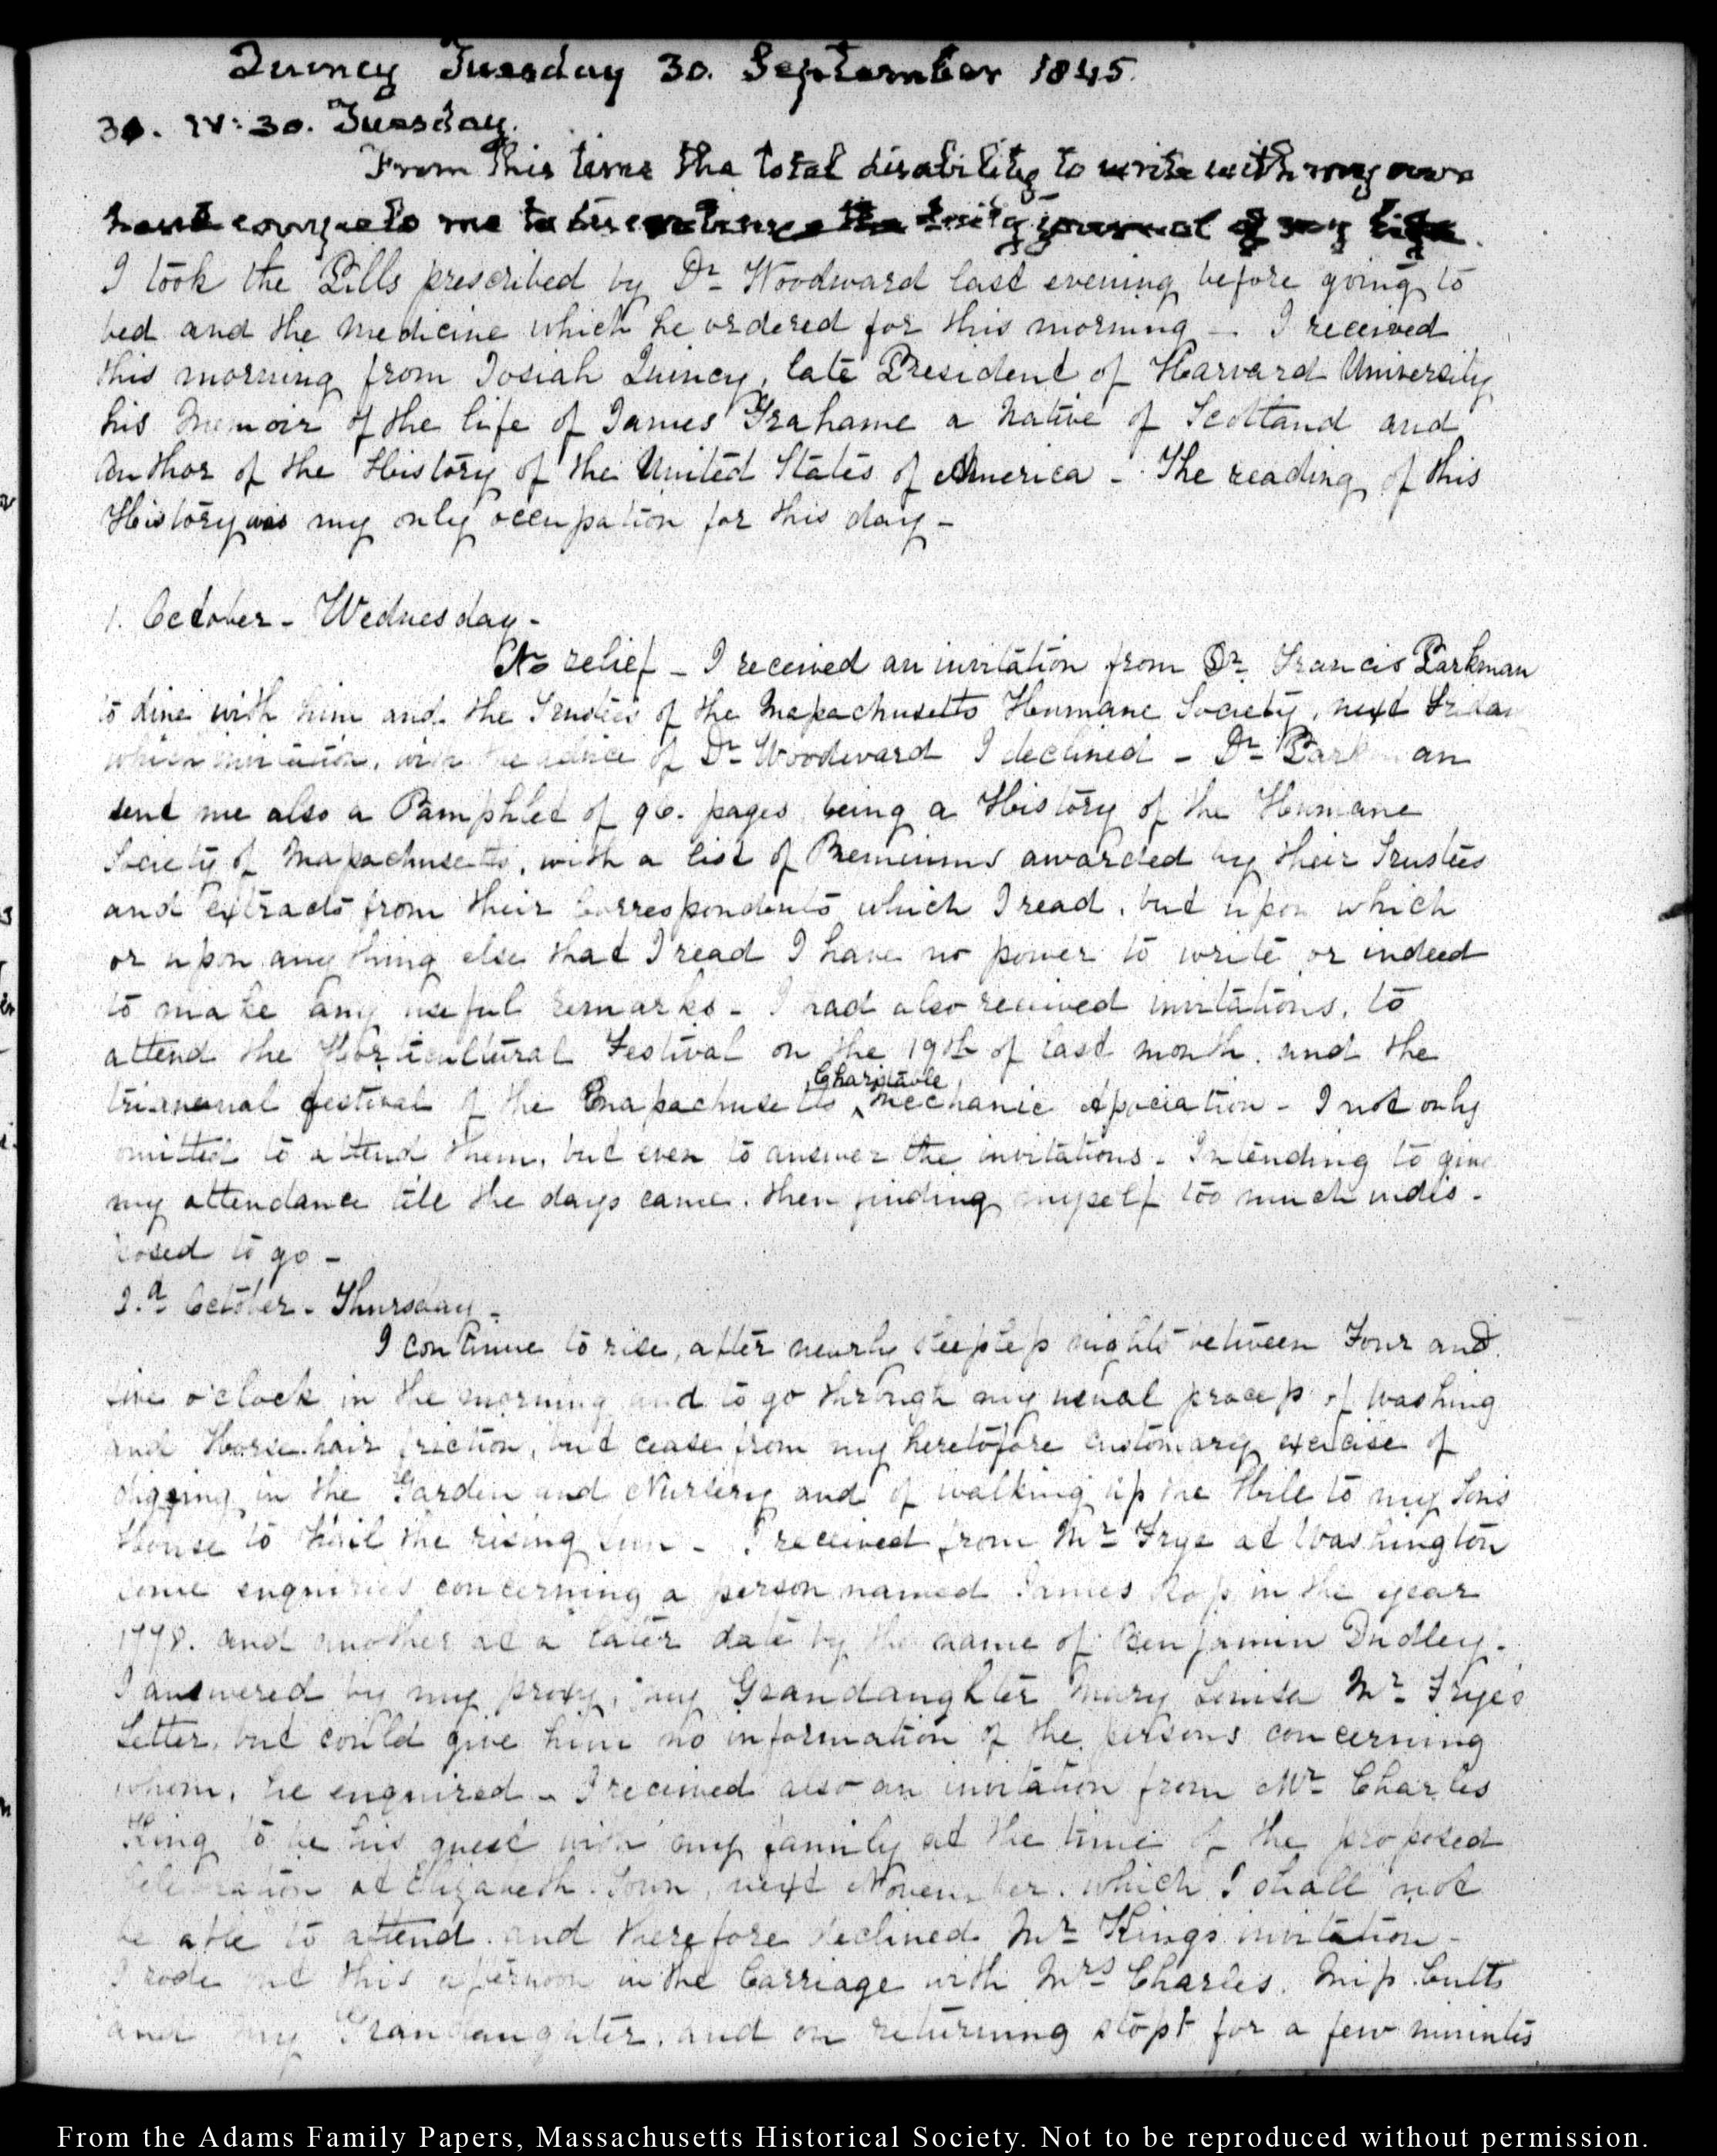 Quincy Tuesday 30. September 1845.
30. IV:30. Tuesday.
From this time the total disability to write with my own
hand compels me to discontinue the daily journal of my life.
I took the Pills prescribed by Dr. Woodward last evening before going to
bed and the Medicine which he ordered for this morning — I received
this morning from Josiah Quincy, late President of Harvard University,
his Memoir of the life of James Grahame a Native of Scotland and
Author of the History of the United States of America - The reading of this
History was my only occupation for this day -
1. October - Wednesday -
No relief - I received an invitation from Dr. Francis Parkman
to dine with him and the Trustees of the Massachusetts Humane Society, next Friday
which invitation, with the advice of Dr. Woodward I declined - Dr. Parkman
sent me also a Pamphlet of 96. pages being a History of the Humane
Society of Massachusetts, with a list of Premiums awarded by their Trustees
and extracts from their Correspondents which I read, but upon which
or upon any thing else that I read I have no power to write or indeed
to make any useful remarks - I had also received invitations, to
attend the Horticultural Festival on the 19th of last month, and the
triennial festival of the Massachusetts Charitable Mechanic Association - I not only
omitted to attend them, but even to answer the invitations - Intending to give
my attendance till the days came, then finding myself too much indis-
posed to go -
2.d October - Thursday -
I continue to rise, after nearly sleepless nights between Four and
five o'clock in the morning and to go through my usual process of Washing
and Horse-hair friction, but cease from my heretofore customary exercise of
digging in the Garden and Nursery and of walking up the Hill to my Sons
House to hail the rising sun - I received from Mr. Frye at Washington
some enquiries concerning a person named James Ross in the year
1798. and another at a later date by the name of Benjamin Dudley -
I answered by my proxy, my Grandaughter Mary Louisa Mr. Frye's
Letter, but could give him no information of the persons concerning
whom, he enquired - I received also an invitation from Mr. Charles
King to be his guest with my family at the time of the proposed
Celebration at Elizabeth Town, next November, which I shall not
be able to attend and therefore declined Mr. King's invitation -
I rode out this afternoon in the Carriage with Mrs. Charles, Miss Cutts
and my Grandaughter, and on returning stopt for a few minutes
From the Adams Family Papers, Massachusetts Historical Society. Not to be reproduced without permission.